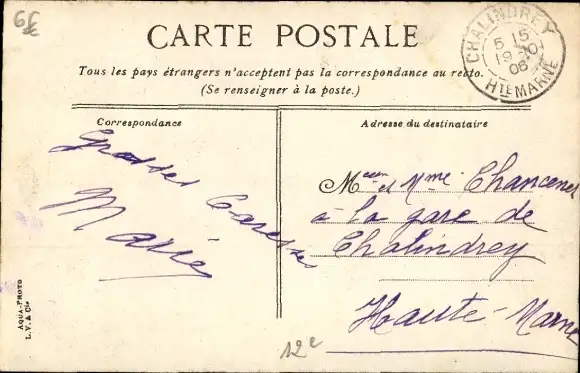 6£
CARTE POSTALE
Tous les pays étrangers n'acceptent pas la correspondance au recto.
(Se renseigner à la poste.)
CHALINDREY
5 15
19 10
06
Hte MARNE
Correspondance
Grosses Caresses
Marie
Adresse du destinataire
M et Mme Chancenel
à la gare de
Chalindrey
Haute-Marne
AQUA-PHOTO
L. V. & Cie
12e